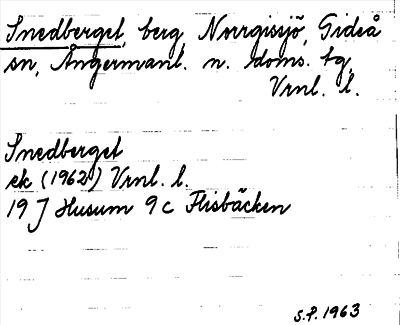 Snedberget, berg, Norrgissjö, Gideå
sn, Ångermanl. n. doms. tg
Vrnl. l.
Snedberget
ek (1962) Vrnl. l.
19 J Husum 9 c Flisbäcken
S.P. 1963